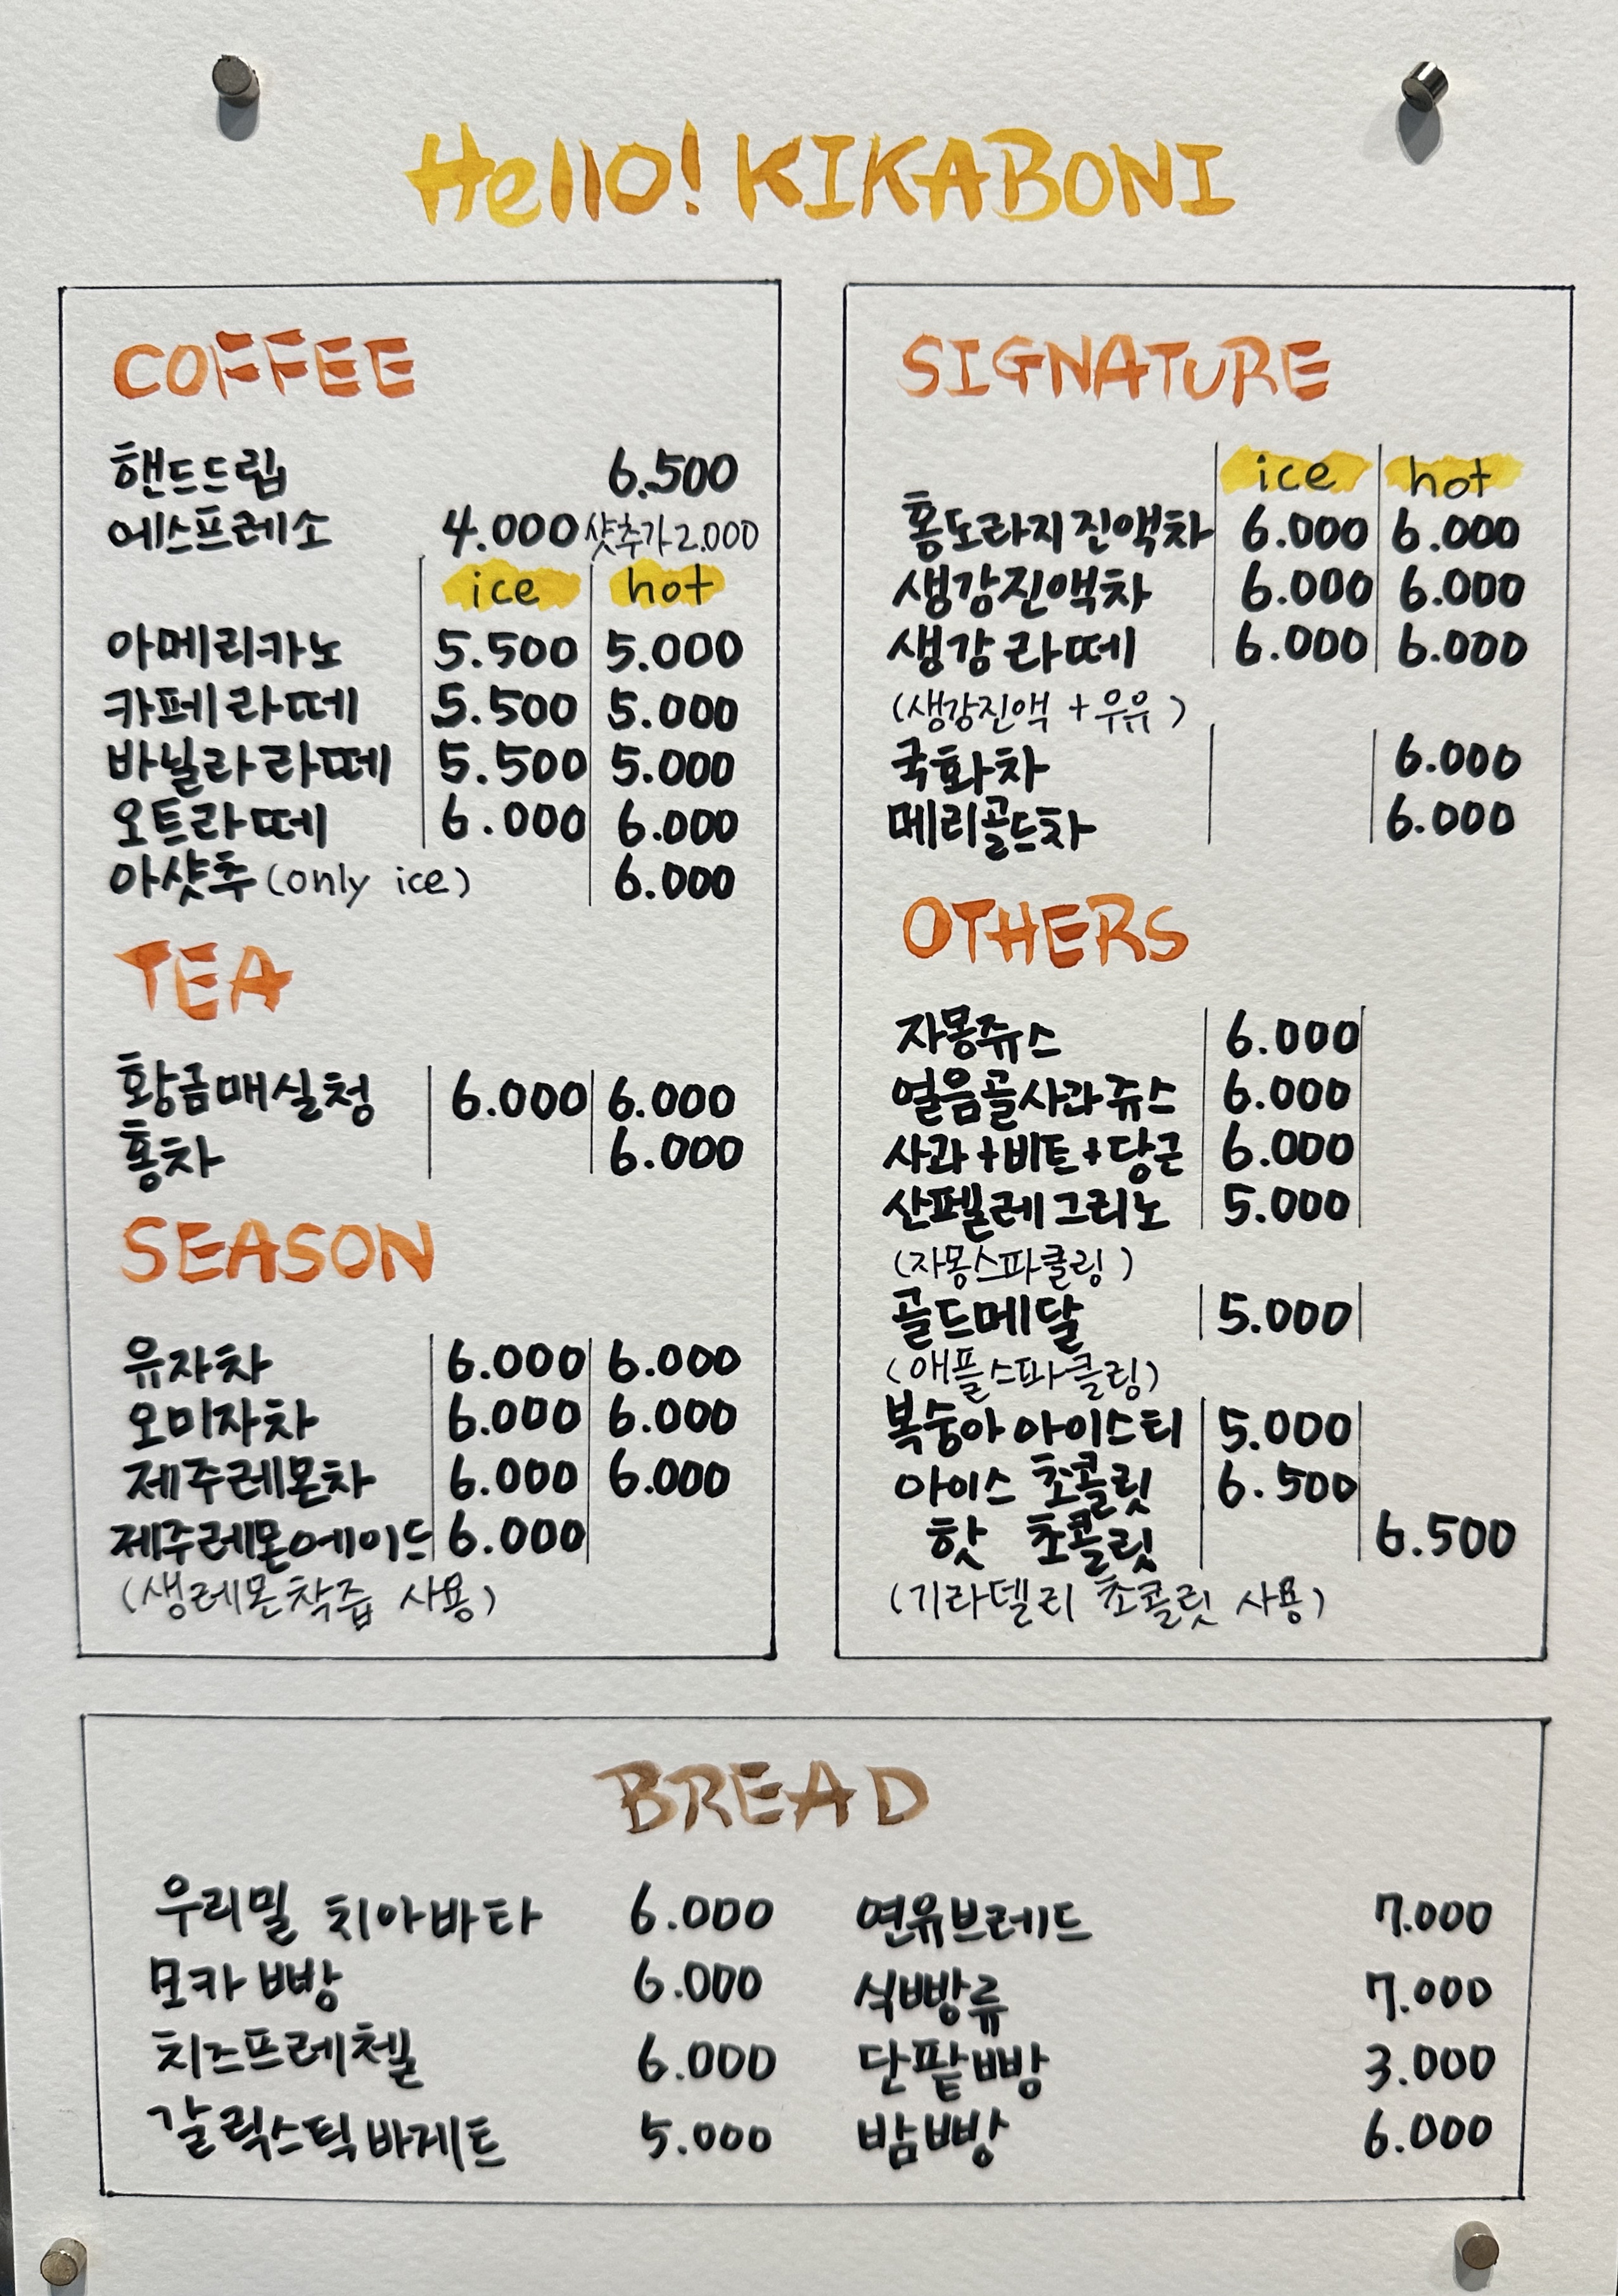 Hello! KIKABONI
COFFEE
핸드드립 6.500
에스프레소 4.000 샷추가 2.000
ice hot
아메리카노 5.500 5.000
카페라떼 5.500 5.000
바닐라라떼 5.500 5.000
오트라떼 6.000 6.000
아샷추 (only ice) 6.000
TEA
황금매실청 6.000 6.000
홍차 6.000
SEASON
유자차 6.000 6.000
오미자차 6.000 6.000
제주레몬차 6.000 6.000
제주레몬에이드 6.000
(생레몬착즙 사용)
SIGNATURE
ice hot
홍도라지진액차 6.000 6.000
생강진액차 6.000 6.000
생강라떼 6.000 6.000
(생강진액 + 우유)
국화차 6.000
메리골드차 6.000
OTHERS
자몽쥬스 6.000
얼음골사과쥬스 6.000
사과+비트+당근 6.000
산펠레그리노 5.000
(자몽스파클링)
골드메달 5.000
(애플스파클링)
복숭아 아이스티 5.000
아이스 초콜릿 6.500
핫 초콜릿 6.500
(기라델리 초콜릿 사용)
BREAD
우리밀 치아바타 6.000 연유브레드 7.000
모카빵 6.000 식빵류 7.000
치즈프레첼 6.000 단팥빵 3.000
갈릭스틱바게트 5.000 밤빵 6.000